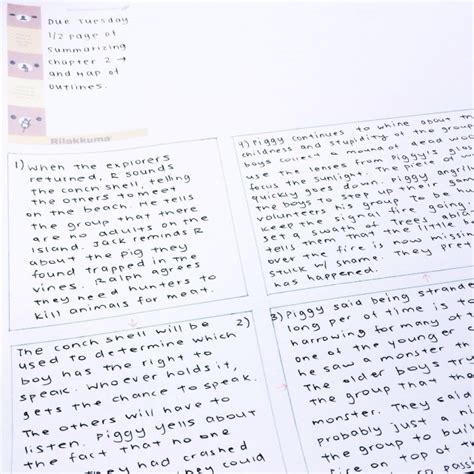 Due Tuesday
1/2 page of
Summarizing
Chapter 2 →
and Map of
Outlines.
Rilakkuma
1) When the explorers
returned, R sounds
the conch shell, telling
the others to meet
on the beach. He tells
the group that there
are no adults on the
island. Jack reminds R
about the pig they
found trapped in the
vines. Ralph agrees
they need hunters to
kill animals for meat.
2)
The conch shell will be
used to determine which
boy has the right to
speak. Whoever holds it,
gets the chance to speak.
The others will have to
listen. Piggy yells about
the fact that no one
they had crashed
they could
3) Piggy said being strande
long per of time is t
harrowing for many of
one of the younger
he saw a monster
The older boys tr
the group that the
monster. They said
probably just a n
the group to buil
top of the
4) Piggy continues to whine about th
childness and stupidity of the group
boys collect mound of dead woo
use the lens from Piggy's gla
focus the sunlight. The piece of
quickly goes down. Piggy angrily
the boys to step up their game
volunteers his group to be
keep the signal fire going.
set a swath of trees
tells them that the little
over the fire is now missi
stuck w/ shame. They pre
has happened.